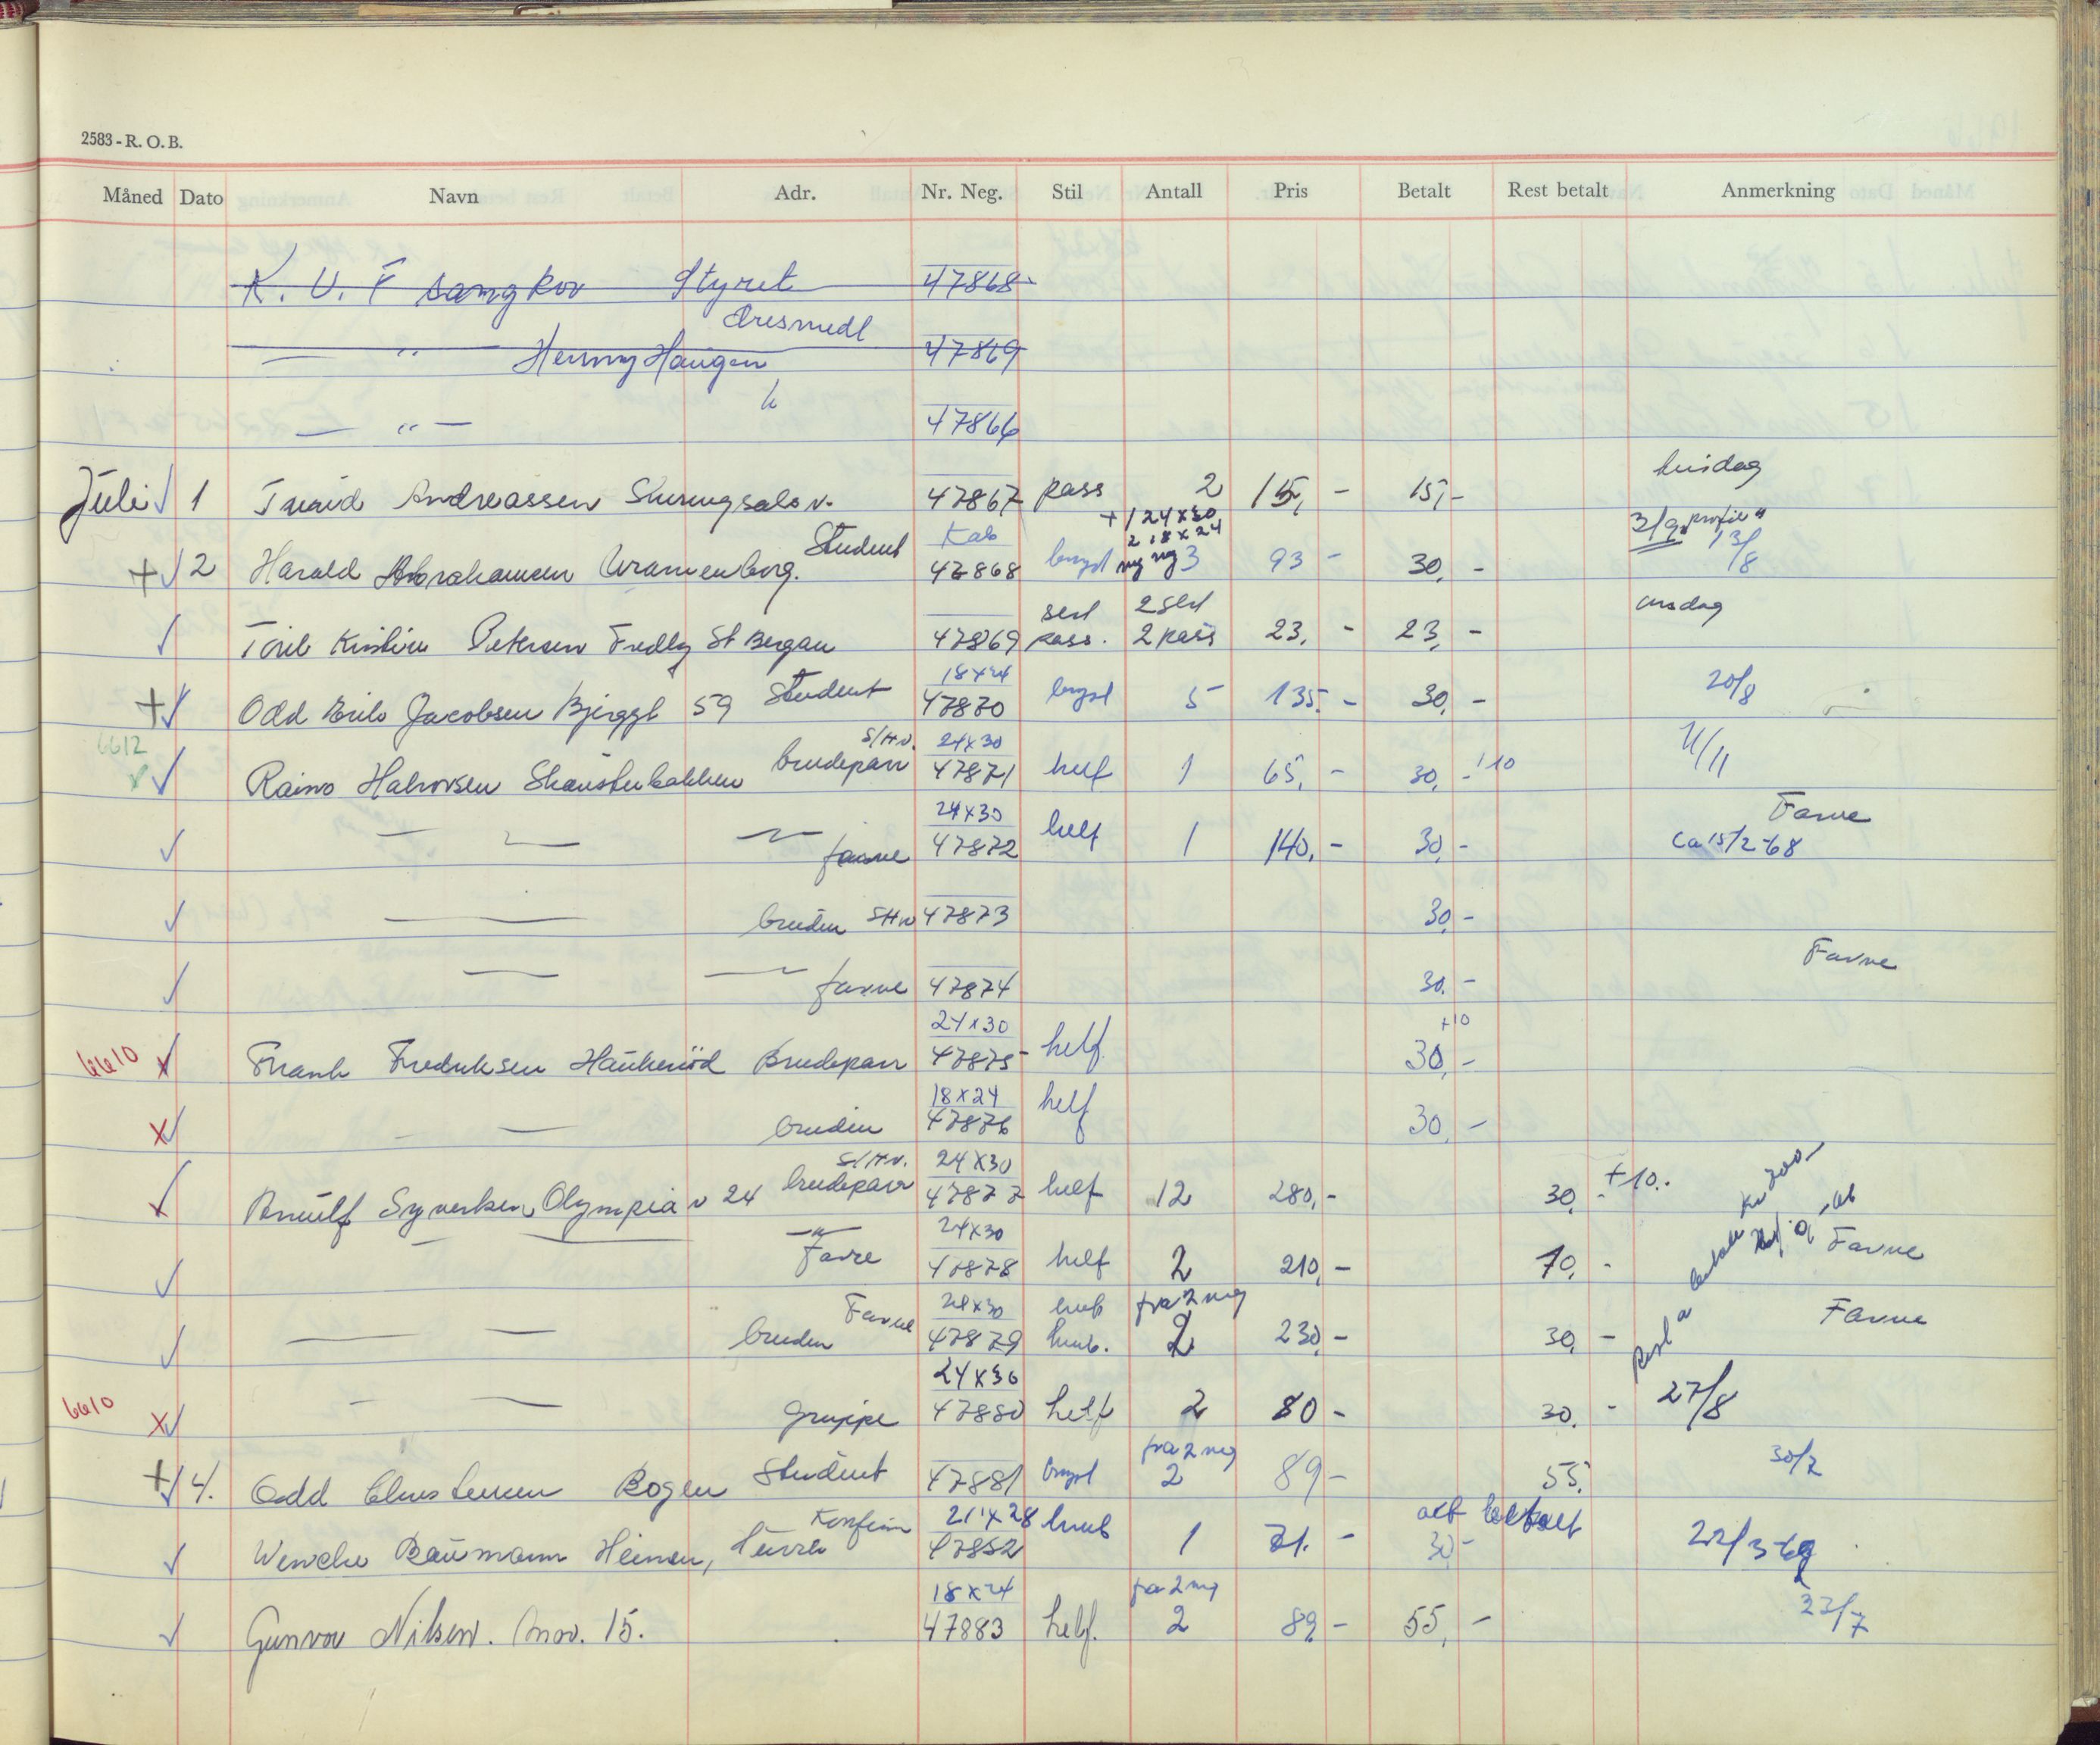 2583 - R. O. B.
Måned Dato Navn Adr. Nr. Neg. Stil Antall Pris Betalt Rest betalt Anmerkning
K. U. F sangkor Styret 47868
Æresmedl
— " — Henny Haugen 47869
— " — 47866
Juli 1 Andreassen 47867 pass 2 15,- 15,- tirsdag
+ 1 24x30
2 18x24
Student Kab 3/9 "profil"
+ 2 Harald Abrahamsen 47868 bryst 3 93 - 30,- 13/8
2 selsk onsdag
Petersen St Bergan 47869 pass. 2 pass 23,- 23,-
18x24
+ Odd Jacobsen Bjerggt 59 Student 47870 bryst 5 135,- 30,- 20/8
6612 S/Hv. 24x30
Halvorsen brudepar 47871 helf 1 65,- 30,- 10 11/11
24x30 Farve
farve 47872 helf 1 140,- 30,- ca 15/2-68
bruden S/Hv 47873 30,-
Farve
farve 47874 30,-
24x30 +10
6610 x Frank Fredriksen Brudepar 47875 helf 30,-
18x24
x bruden 47876 helf 30,-
S/Hv. 24x30
Syvertsen, Olympia v 24 brudepar 47877 helf 12 280,- 30,- +10.-
24x30
Farve 47878 helf 2 210,- 70,- Farve
Farve 24x30 fra 2 neg Farve
bruden 47879 2 230,- 30,-
24x30
6610 x gruppe 47880 helf 2 80 - 30,- 27/8
fra 2 neg
+ 4. Odd Christensen Bogen Student 47881 bryst 2 89 - 55, 30/7
Konfirm 21x28 alt betalt
Wenche Baumann 47882 1 71,- 30,- 22/3-69
18x24 fra 2 neg
Gunvor Nilsen. 15. 47883 helf. 2 89,- 55,- 22/7